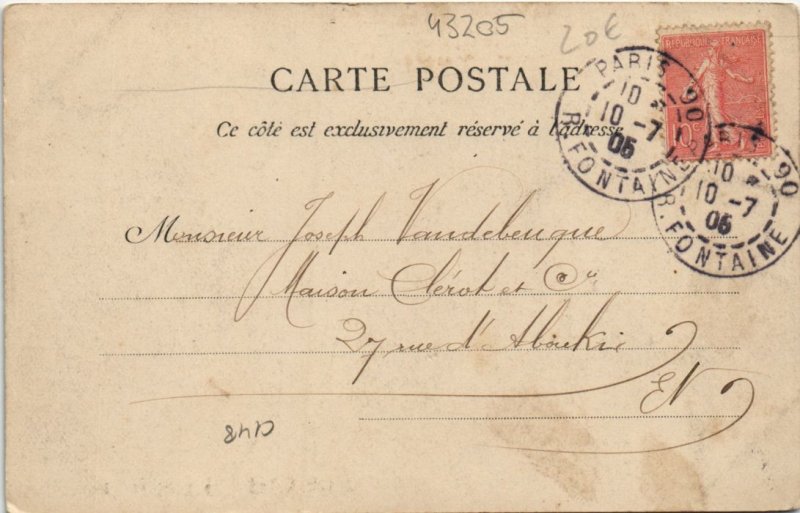 43205
20€
REPUBLIQUE FRANÇAISE
10c
CARTE POSTALE
Ce côté est exclusivement réservé à l'adresse
PARIS 90
10
10 -7
05
R. FONTAINE
90
10
10 -7
05
R. FONTAINE
Monsieur Joseph Vandebeuque
Maison Clérot et Cie
27 rue d'Aboukir
EV